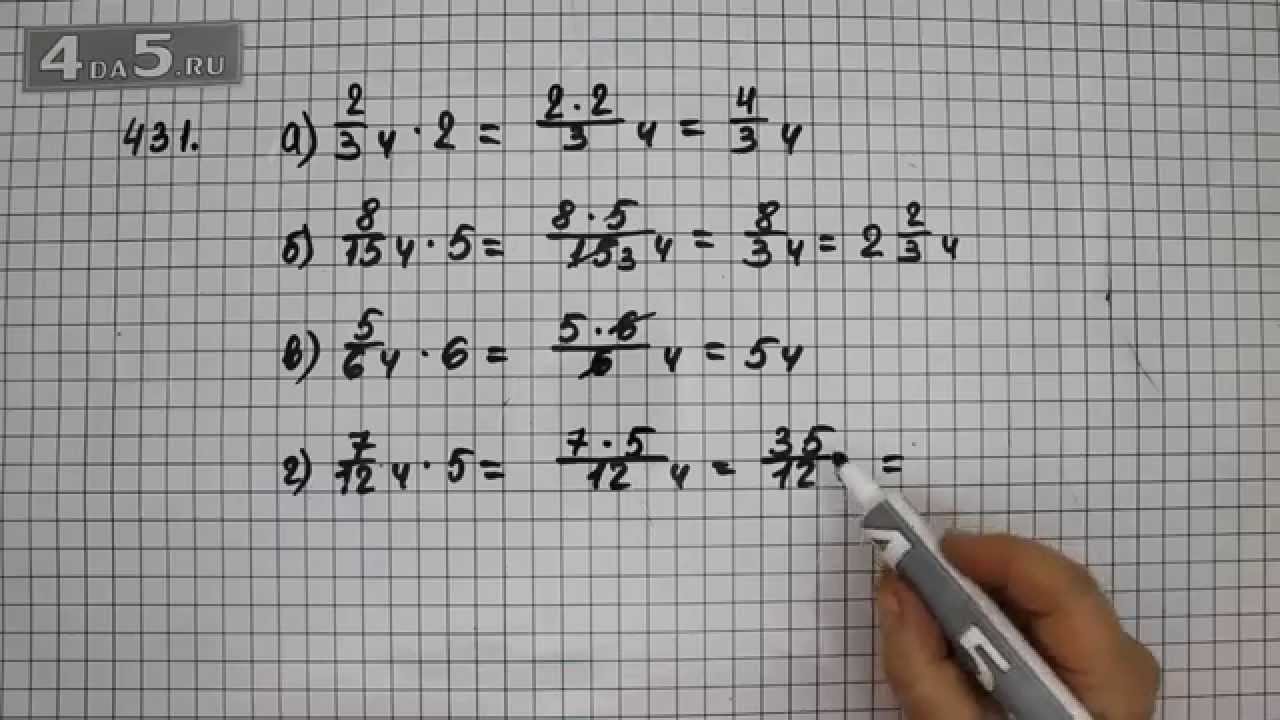 4DA5.RU
431. а) 2/3 ч · 2 = 2·2/3 ч = 4/3 ч
б) 8/15 ч · 5 = 8·5/15 3 ч = 8/3 ч = 2 2/3 ч
в) 5/6 ч · 6 = 5·6/6 ч = 5 ч
г) 7/12 ч · 5 = 7·5/12 ч = 35/12 =